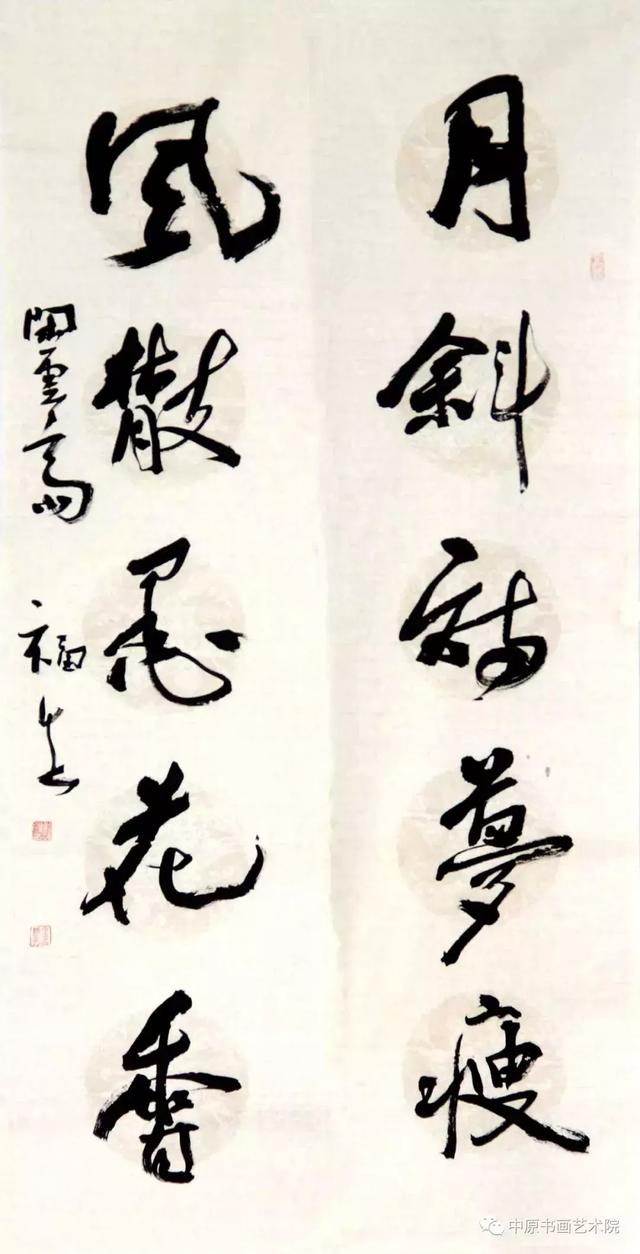 月斜詩夢瘦
風散墨花香
閑雲 福
中原书画艺术院